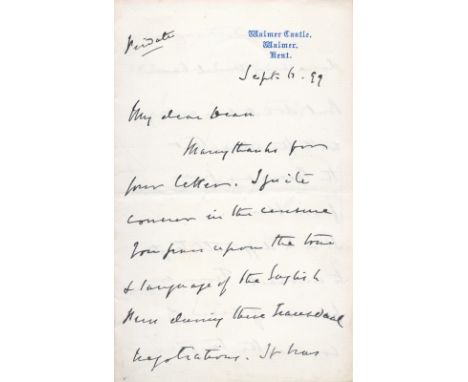 Private
Walmer Castle,
Walmer,
Kent.
Sept. 6. 99
My dear Dean
Many thanks for
your letter. I quite
concur in the censure
you pass upon the tone
& language of the English
Press during these Transvaal
negotiations. It has